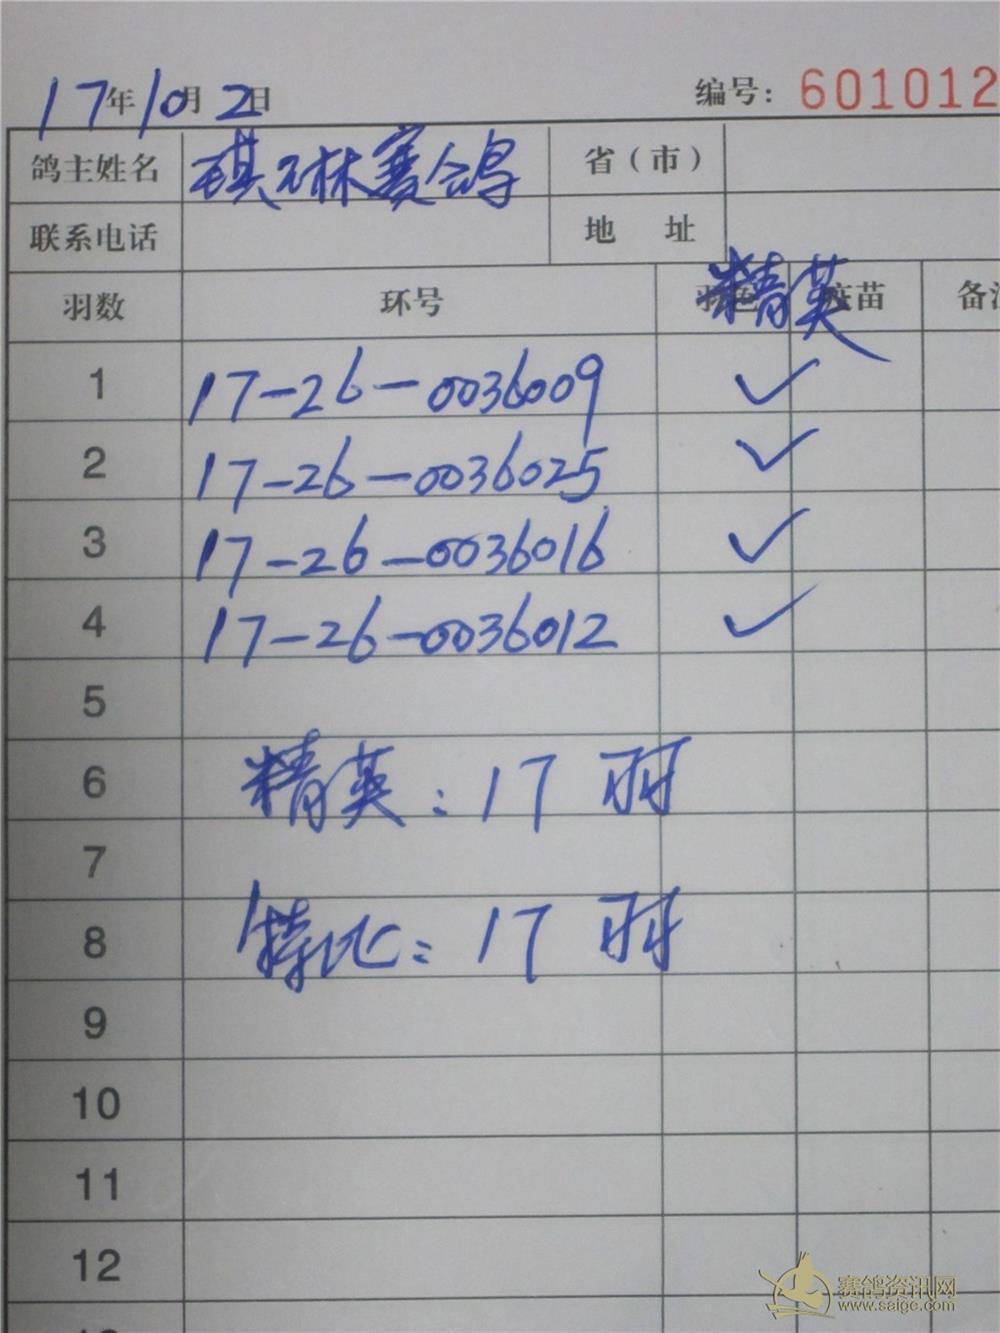 17年10月2日 编号：601012
鸽主姓名 琪琳赛鸽 省（市）
联系电话 地 址
羽数 环号 精英 疫苗
1 17-26-0036009 ✓
2 17-26-0036025 ✓
3 17-26-0036016 ✓
4 17-26-0036012 ✓
5
6 精英：17羽
7
8 特比：17羽
9
10
11
12
赛鸽资讯网
www.saige.com